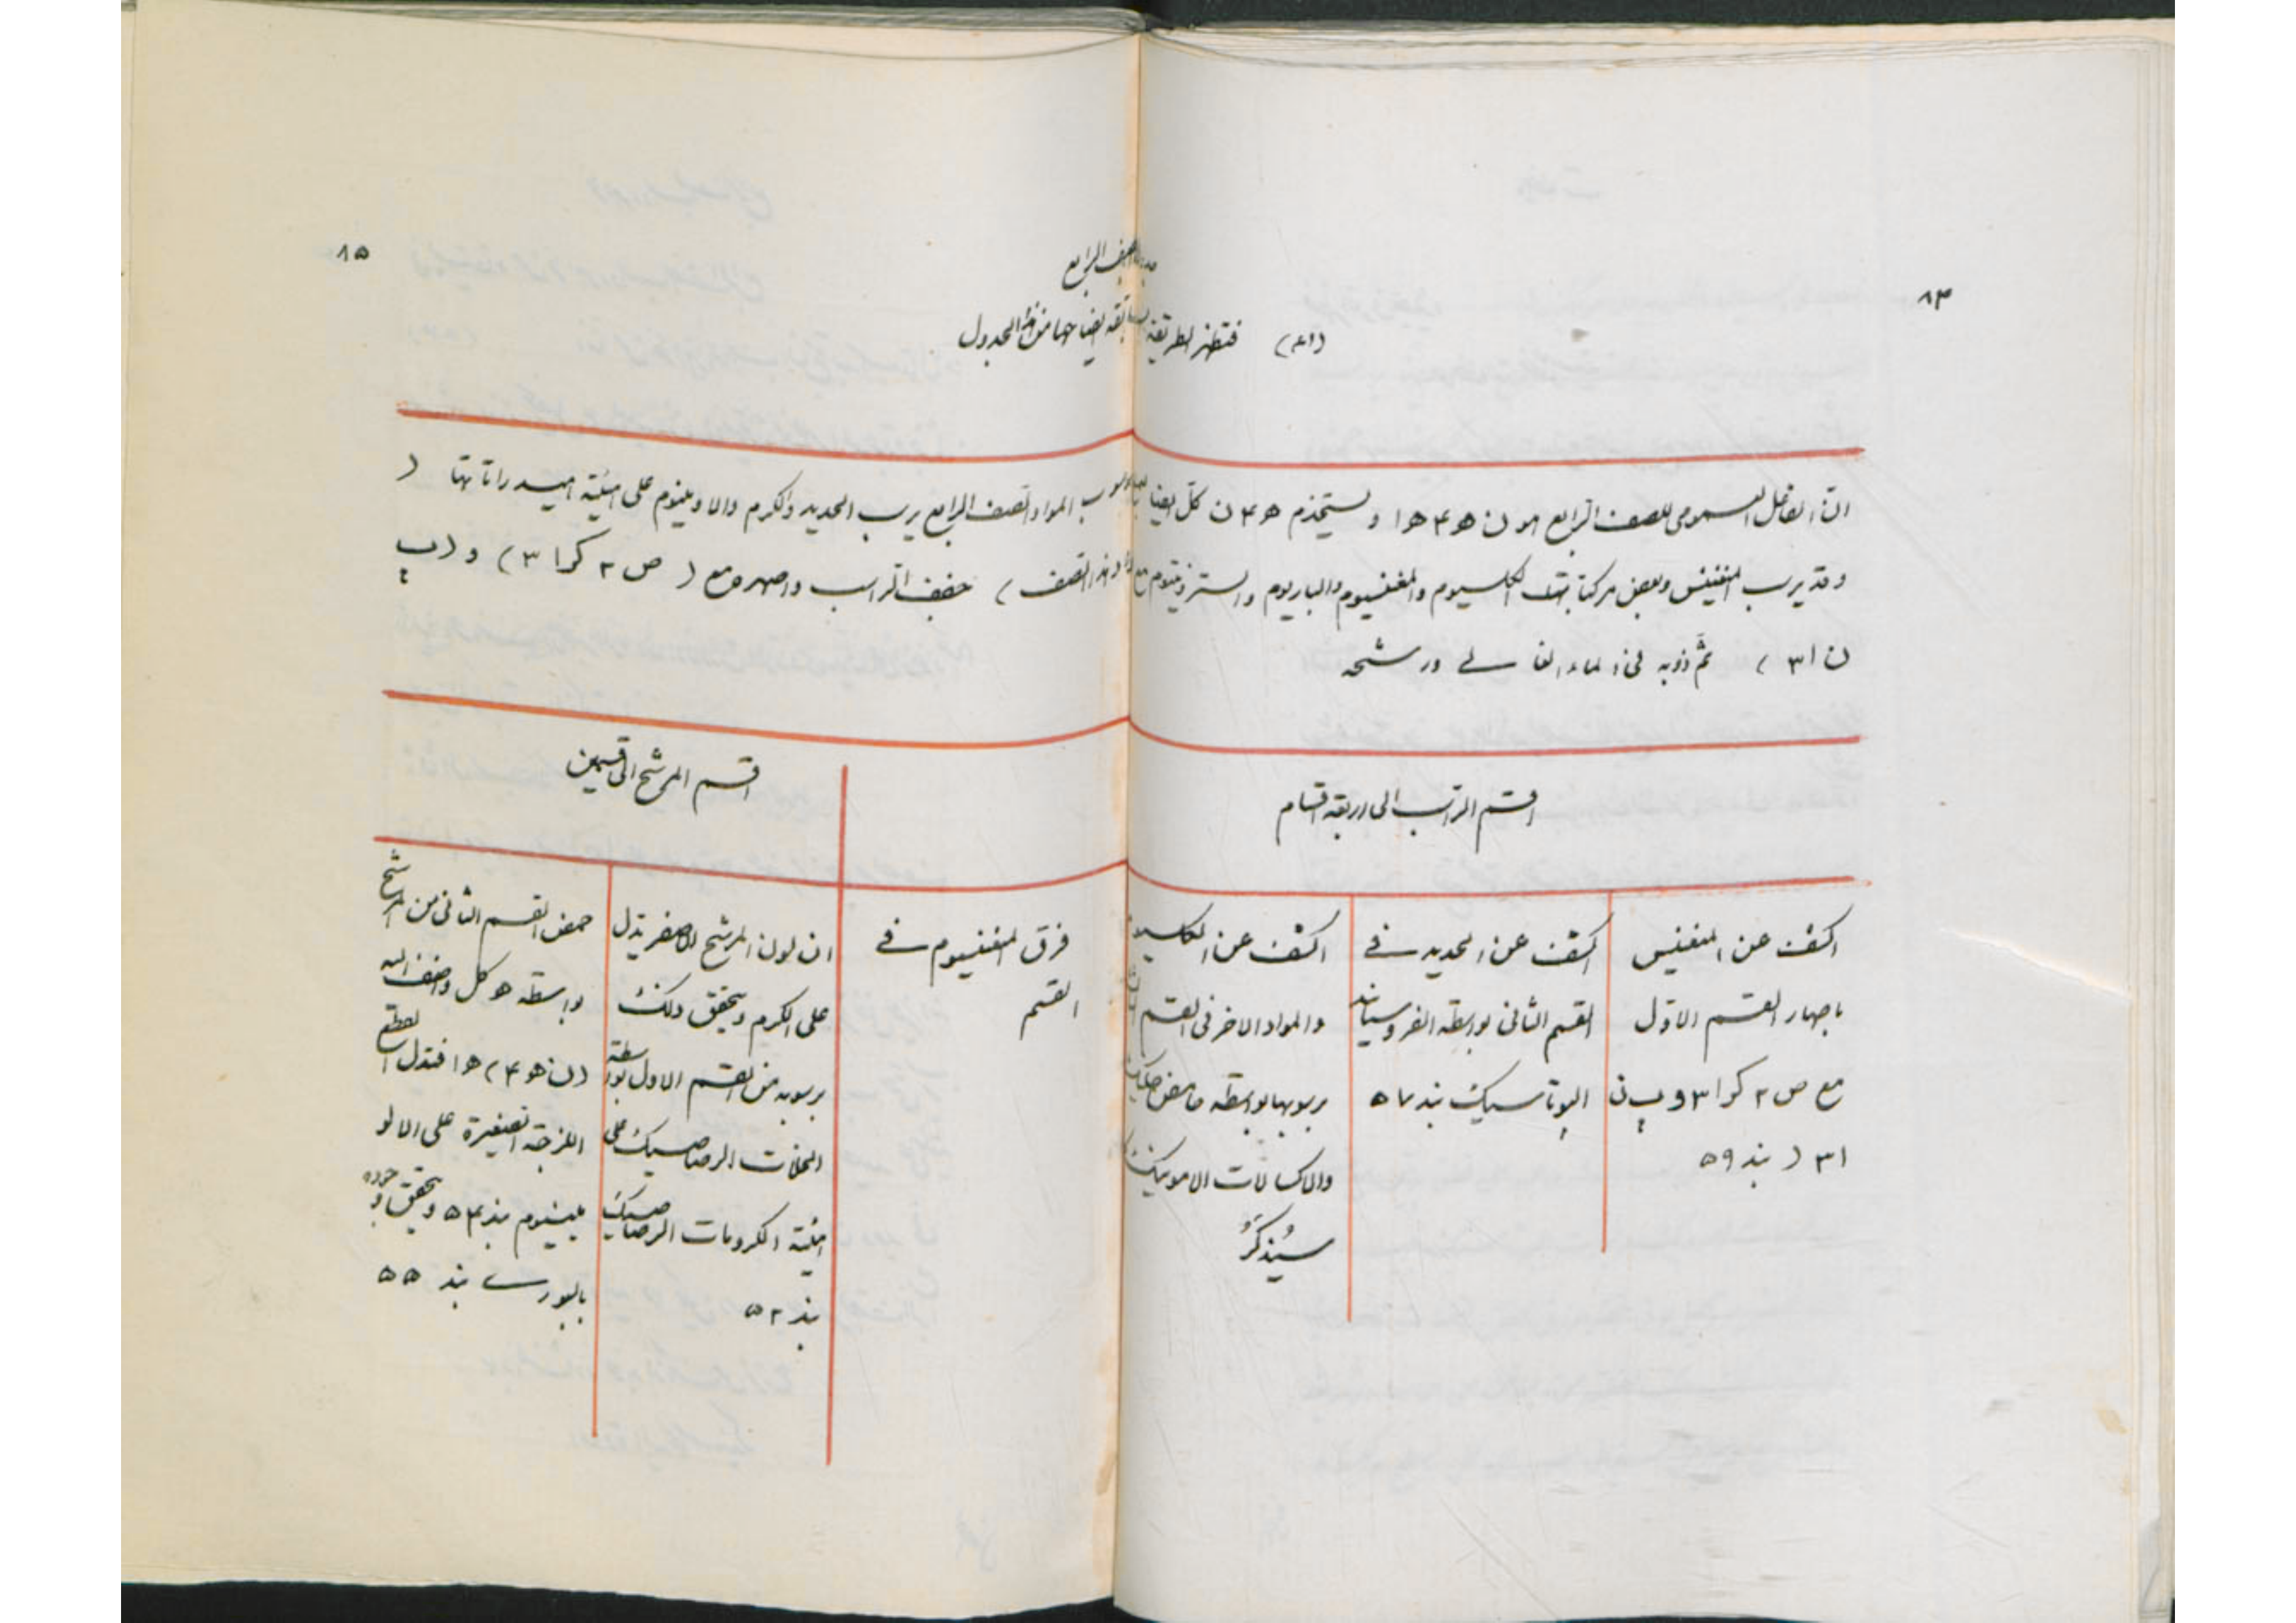 ٨٤
٨٥
الصف الرابع
(٤١) فتظهر الطريقة السابقة ايضاحها من هذا الجدول
انّ الفاعل العمومي للصف الرابع هو ن ه ٤ ه ا ويستخدم ه ٤ ن كل ايضا المواد الصف الرابع يرسب الحديد والكرم والالومينيوم على هيئة هيدراتاتها (
وقد يرسب المنغنيس وبعض مركبات الكلسيوم والمغنسيوم والباريوم والسترونتيوم مع هذا الصف) جفف الراسب واصهره مع (ص ٢ كرا ٣) و (ب
ن ا ٣) ثمّ ذوبه في الماء الغالي ورشحه
اقسم الراسب الى اربعة اقسام
اقسم المرشح الى قسمين
اكشف عن المنغنيس
باصهار القسم الاول
مع ص ٢ كرا ٣ و ب ن
ا ٣ (بند ٥٩
اكشف عن الحديد في
القسم الثاني بواسطة الفروسيانيد
البوتاسيك بند ٥٧
اكشف عن الكلسيوم
والمواد الاخر في القسم
بواسطة حامض
والاكسالات الامونيك
سيُذكَرُ
فرق المغنسيوم في
القسم
ان لون المرشح الاصفر يدل
على الكرم ويحقق ذلك
برسوبه من القسم الاول بواسطة
الخلات الرصاصيك على
هيئة الكرومات الرصاصيك
بند ٥٢
حمض القسم الثاني من المرشح
بواسطة ه كل واضف اليه
(ن ه ٤) ه ا فتدل القطع
اللزجة الصغيرة على الالو
مينيوم بند ٥٤ ويحقق وجوده
بالبوري بند ٥٥